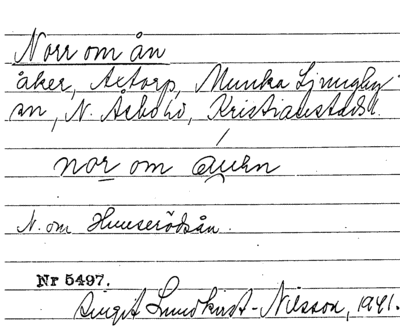 Norr om ån
åker, Axtorp, Munka Ljungby
sn, N. Åsbo hd, Kristianstads l.
nor om
N. om Hunserödsån.
Nr 5497.
Birgit Lundkvist-Nilsson, 1941.